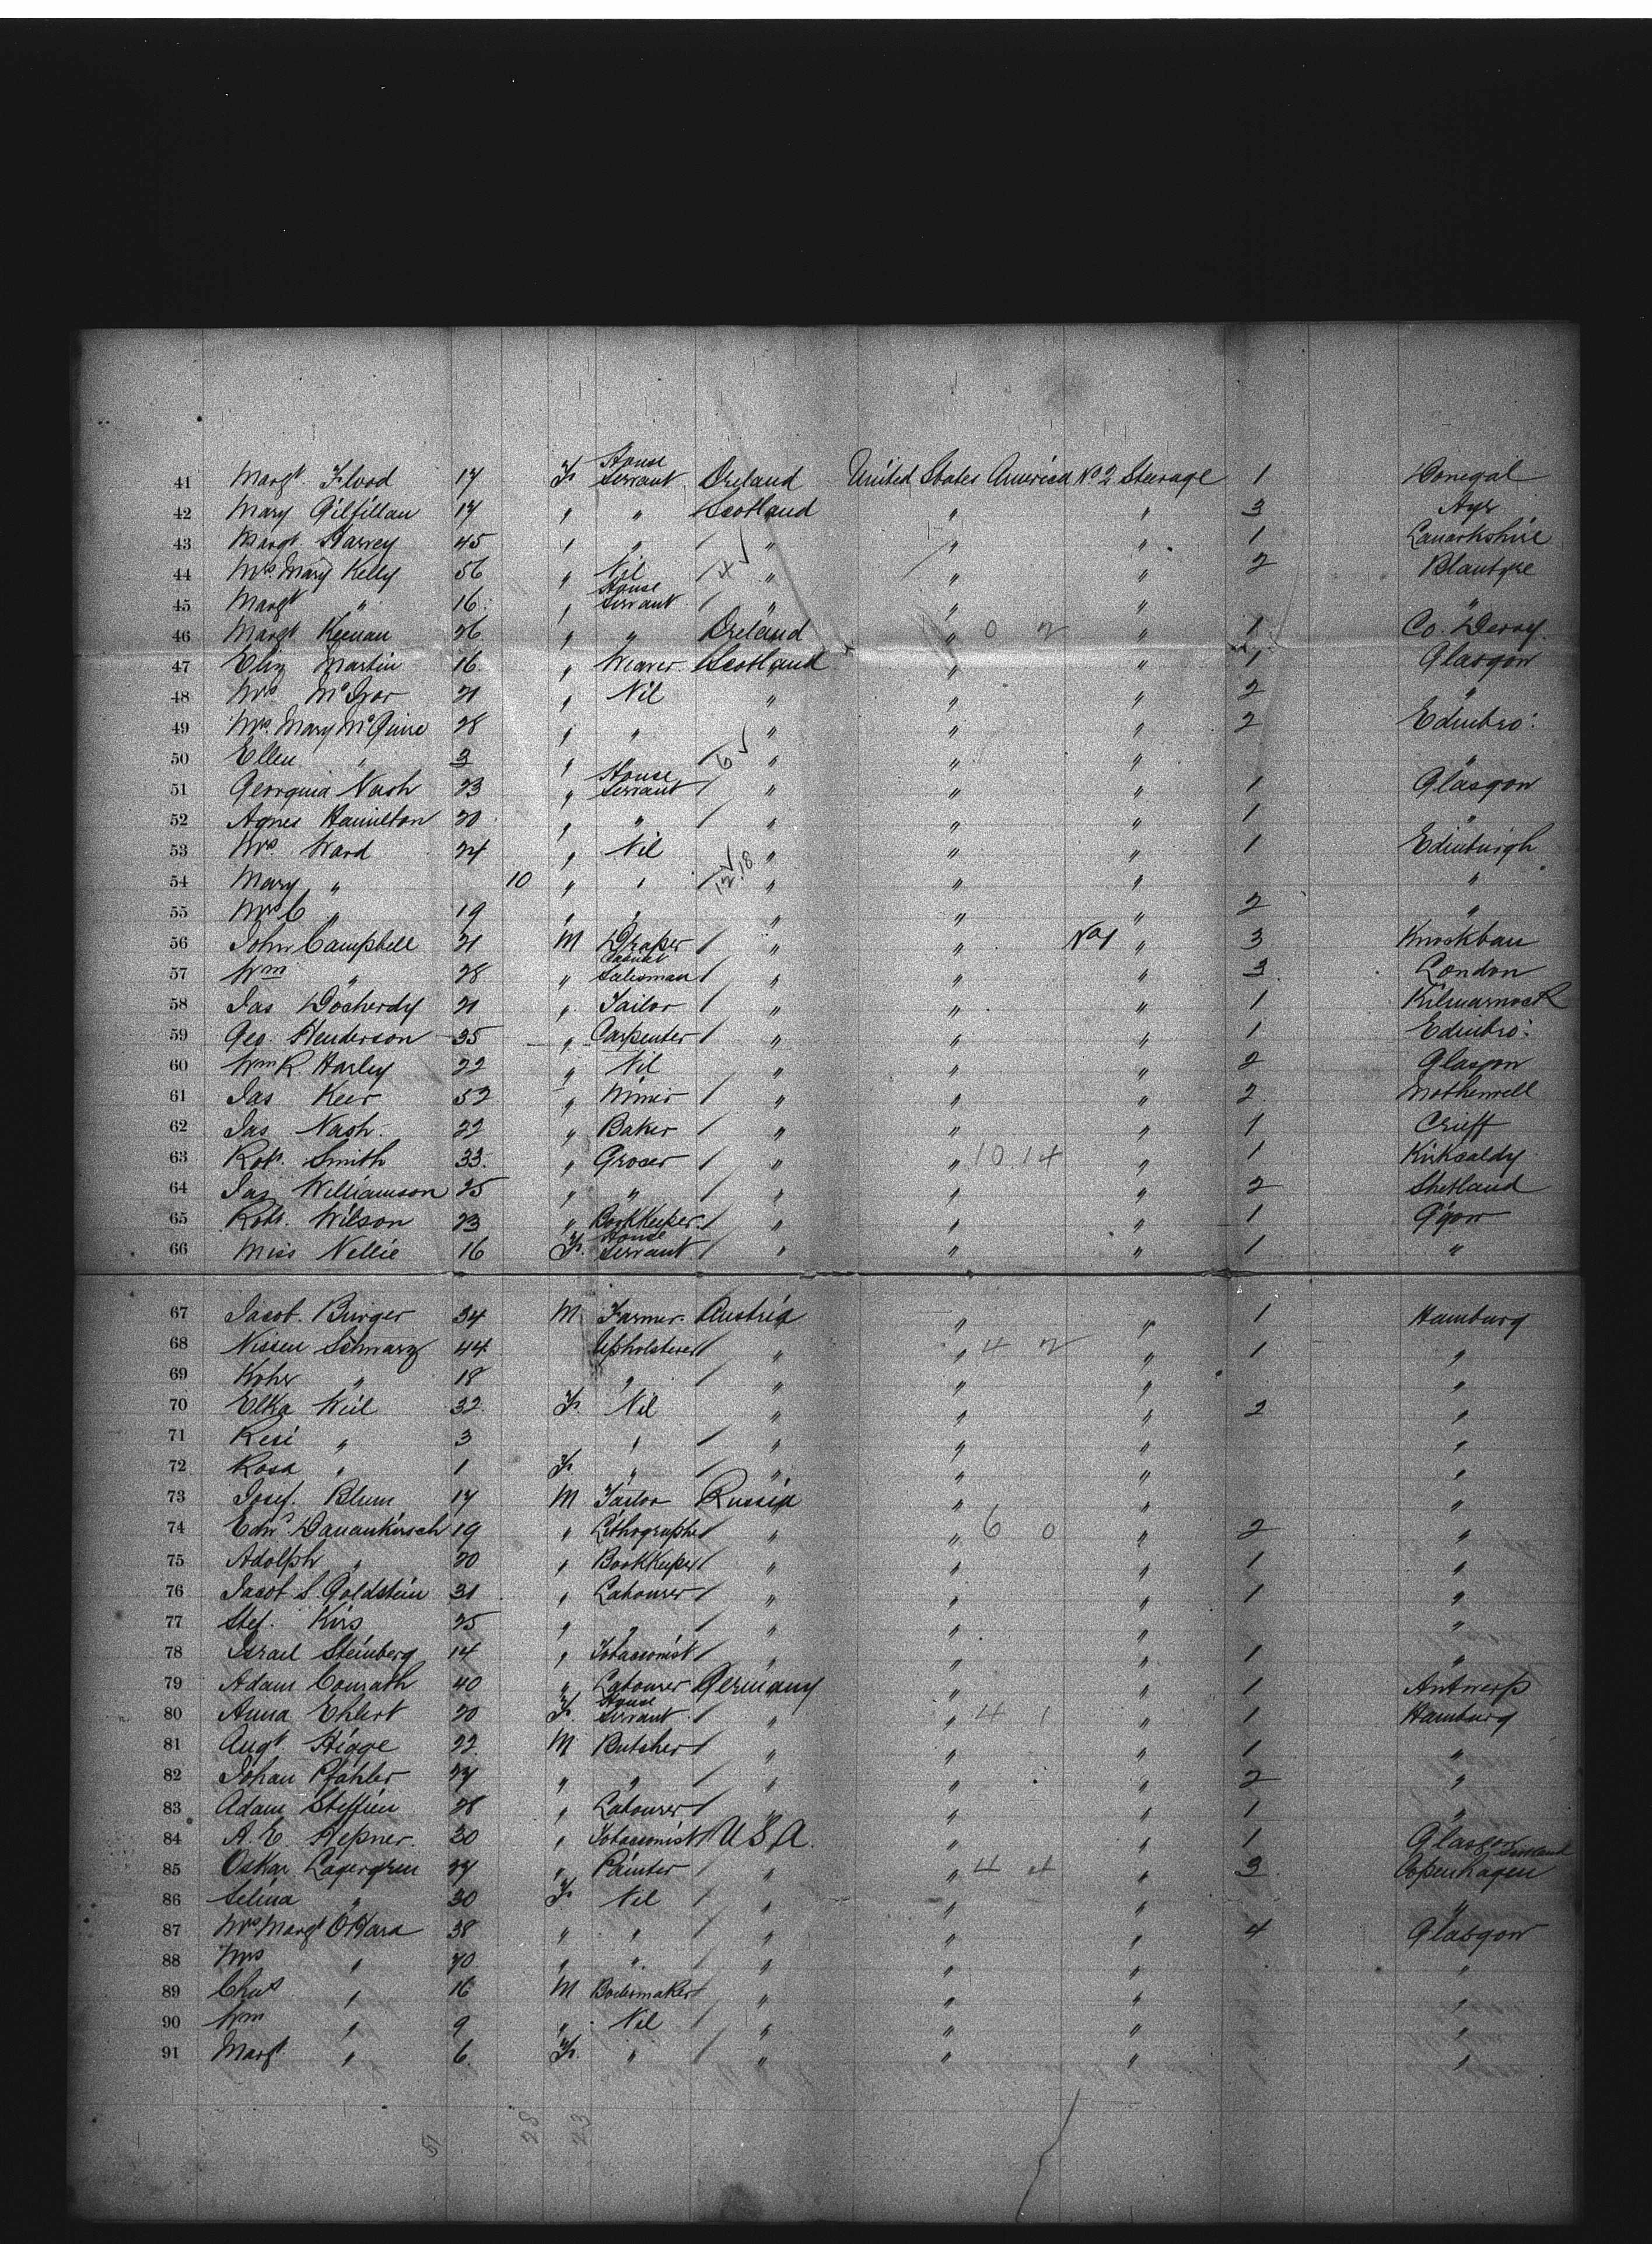 41 Margt Flood 17 F House Servant Ireland United States America No 2 Steerage 1 Donegal
42 Mary Gilfillan 17 " " Scotland " " 3 Ayr
43 Margt Harvey 45 " " " " " 1 Lanarkshire
44 Mrs Mary Kelly 56 " Nil " " " 2 Blantyre
45 Margt " 16 " House Servant " " " "
46 Margt Keenan 26 " " Ireland " 0 2 " 1 Co. Derry
47 Eliz Martin 16 " Weaver Scotland " " 1 Glasgow
48 Mrs McIvor 21 " Nil " " " 2 "
49 Mrs Mary McGuire 28 " " " " " 2 Edinbro:
50 Ellen " 3 " " 6 " " " "
51 Georgina Nash 23 " House Servant " " " 1 Glasgow
52 Agnes Hamilton 20 " " " " " 1 "
53 Mrs Ward 24 " Nil " " " 1 Edinburgh
54 Mary " 10 " " 12.18 " " " "
55 Mrs C " 19 " " " " " 2 "
56 John Campbell 21 M Draper " " No 1 " 3 Knockbau
57 Wm " 28 " Salesman " " " 3 London
58 Jas Docherdy 21 " Tailor " " " 1 Kilmarnock
59 Geo. Henderson 35 " Carpenter " " " 1 Edinbro:
60 Wm R. Harley 22 " Nil " " " 2 Glasgow
61 Jas Keer 52 " Miner " " " 2 Motherwell
62 Jas Nash 22 " Baker " " " 1 Crieff
63 Robt. Smith 33 " Grocer " " 10 14 " 1 Kirkcaldy
64 Jas Williamson 25 " " " " " 2 Shetland
65 Robt. Wilson 23 " BookKeeper " " " 1 G'gow
66 Miss Nellie 16 F. House Servant " " " 1 "
67 Jacob Burger 34 M Farmer Austria " " 1 Hamburg
68 Nissen Schwarz 44 Upholsterer " " 4 2 " 1 "
69 " 18 " " " " "
70 Elka Keil 32 F. Nil " " " 2 "
71 Resi " 3 " " " " "
72 Rosa " 1 F. " " " " "
73 Josef. Blum 17 M Tailor Russia " " "
74 Edw Danankirsch 19 " Lithographer " " 6 0 " 2 "
75 Adolph " 20 " BookKeeper " " " 1 "
76 Jacob S. Goldstein 31 " Labourer " " " 1 "
77 Stef. Kirs 25 " " " " " "
78 Israel Steinberg 14 " Tobacconist " " " 1 "
79 Adam Conrath 40 " Labourer Germany " " 1 Antwerp
80 Anna Ehlert 20 F. House Servant " " 4 1 " 1 Hamburg
81 Augt. Higge 22 M Butcher " " " 1 "
82 Johan Pfahler 27 " " " " " 2 "
83 Adam Steffien 28 " Labourer " " " 1 "
84 A. E. Hepner 30 " Tobacconist U S A. " " 1 Glasgow Scotland
85 Oskar Lagergren 27 " Painter " " 4 4 " 3 Copenhagen
86 Selina " 30 F. Nil " " " "
87 Mrs Margt O'Hara 38 " " " " " 4 Glasgow
88 Mrs " 70 " " " " " "
89 Chas " 16 M Boilermaker " " " "
90 Wm " 9 " Nil " " " "
91 Margt. " 6 F. " " " " "
51 28 23